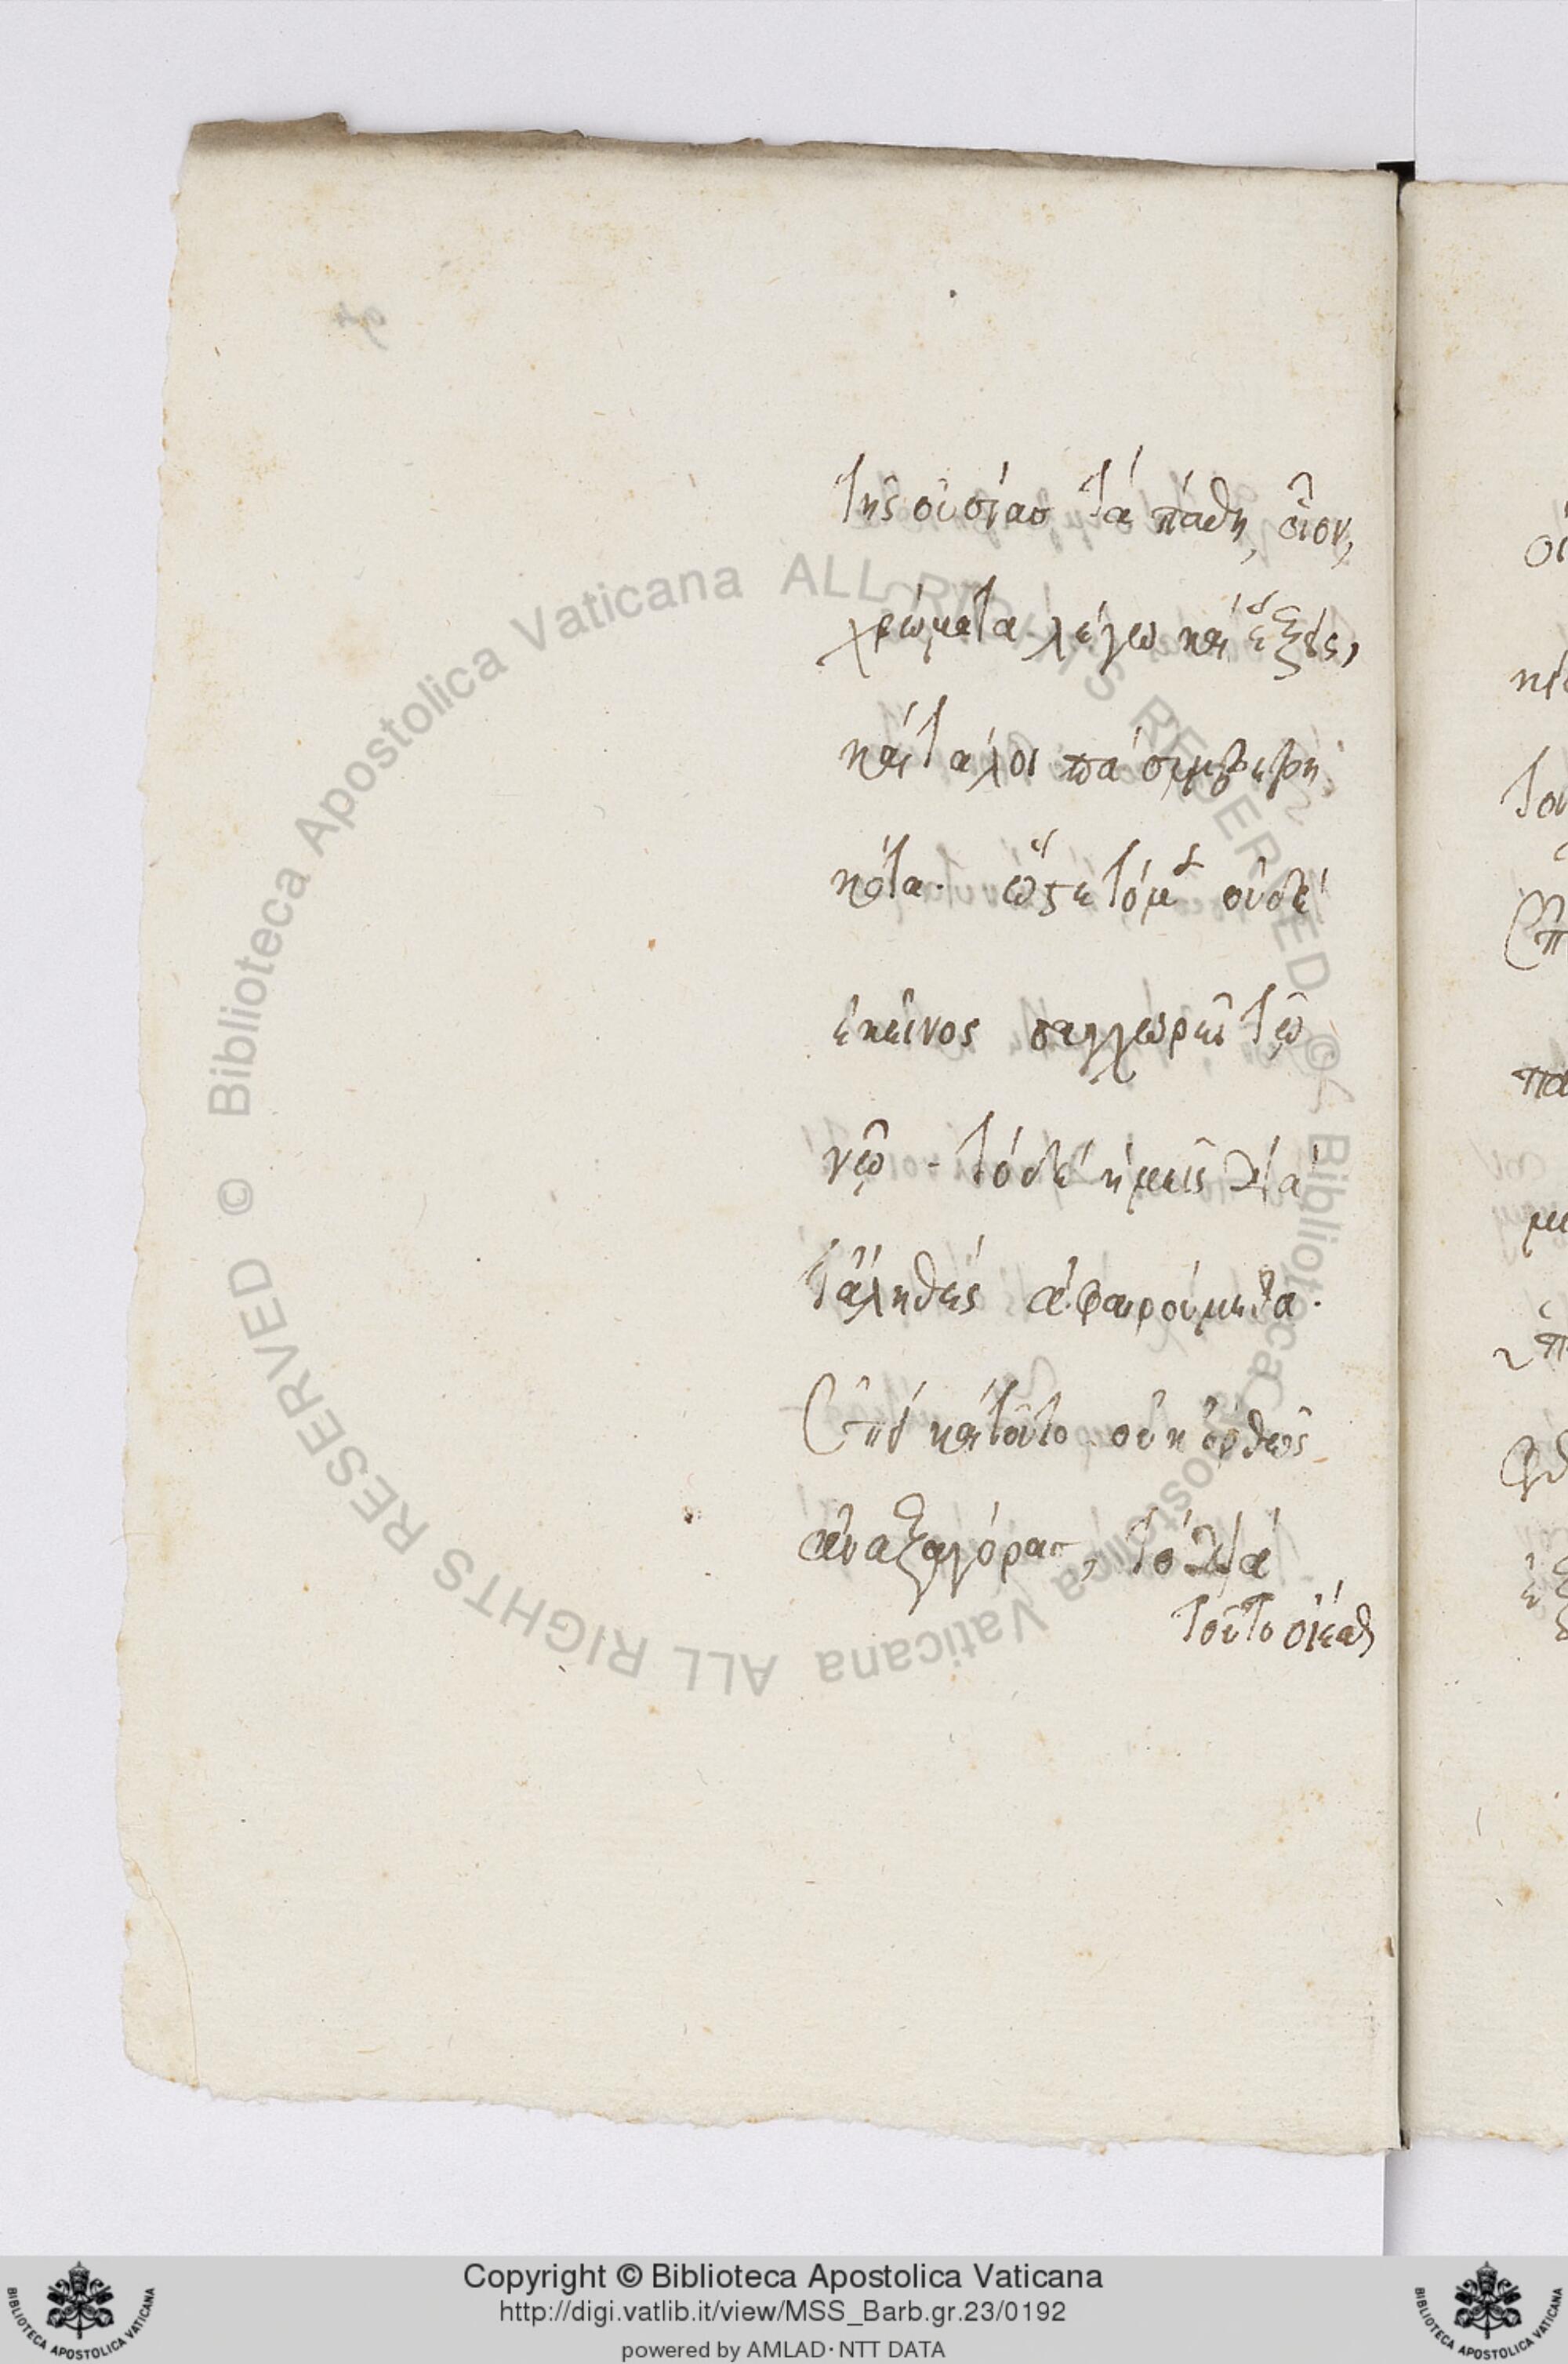 τῆς οὐσίασ τὰ πάθη, οἷον,
χρώματα λέγω καὶ ἕξεις,
καὶ τα λοι πὰ συμβεβη
κότα. ὥςε τὸ μὲν οὐδὲ
ἐκεῖνος συγχωρεῖ τῷ
νῷ - τὸ δὲ ἡμεῖς διὰ
τἀληθὲς ἀφαιρούμεθα.
καὶ τοῦτο οὐκ ὀρθῶς
ἀναξαγόρασ, τὸ διὰ
τοῦτο οἴεσθαι
Biblioteca Apostolica Vaticana ALL RIGHTS RESERVED ©
Biblioteca Apostolica Vaticana ALL RIGHTS RESERVED ©
Copyright © Biblioteca Apostolica Vaticana
http://digi.vatlib.it/view/MSS_Barb.gr.23/0192
powered by AMLAD·NTT DATA
BIBLIOTECA APOSTOLICA VATICANA
BIBLIOTECA APOSTOLICA VATICANA